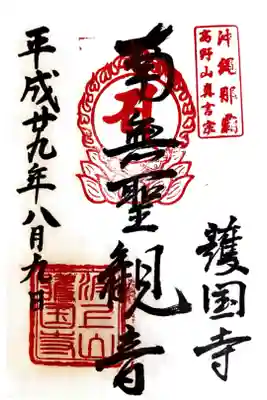 沖縄那覇
高野山真言宗
南無聖観音
護国寺
平成廿九年八月九日
波上山
護国寺